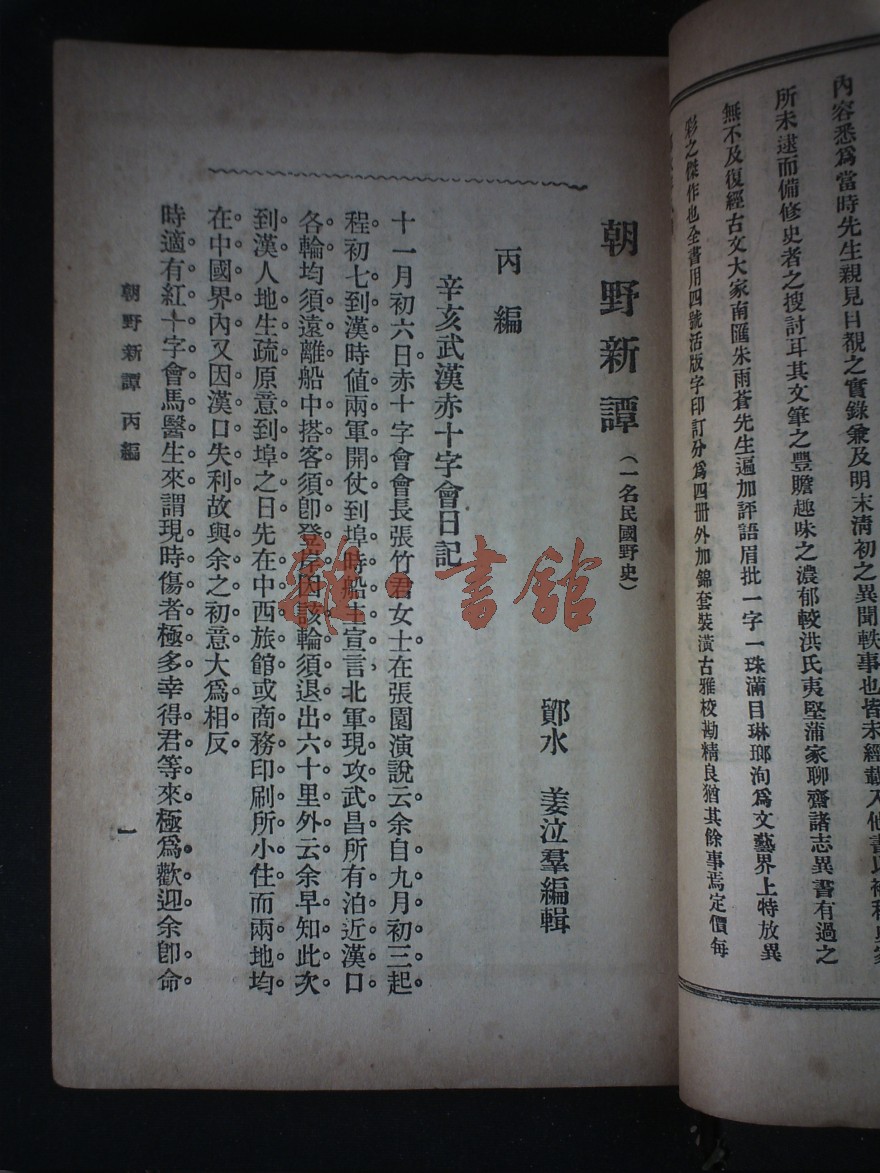 內容悉爲當時先生親見目覩之實錄兼及明末清初之異聞軼事也皆未經載入他書以補
所未逮而備修史者之搜討耳其文筆之豐贍趣味之濃郁較洪氏夷堅蒲家聊齋諸志異書有過之
無不及復經古文大家南匯朱雨蒼先生遍加評語眉批一字一珠滿目琳瑯洵爲文藝界上特放異
彩之傑作也全書用四號活版字印訂分爲四册外加錦套裝潢古雅校勘精良猶其餘事焉定價每
朝野新譚（一名民國野史）
鄞水　姜泣羣編輯
丙編
辛亥武漢赤十字會日記
十一月初六日赤十字會會長張竹君女士在張園演說云余自九月初三起
程初七到漢時値兩軍開仗到埠時船主宣言北軍現攻武昌所有泊近漢口
各輪均須遠離船中搭客須卽登岸因該輪須退出六十里外云余早知此次
到漢人地生疏原意到埠之日先在中西旅館或商務印刷所小住而兩地均
在中國界內又因漢口失利故與余之初意大爲相反
時適有紅十字會馬醫生來謂現時傷者極多幸得君等來極爲歡迎余卽命
朝野新譚　丙編
一
雜·書館